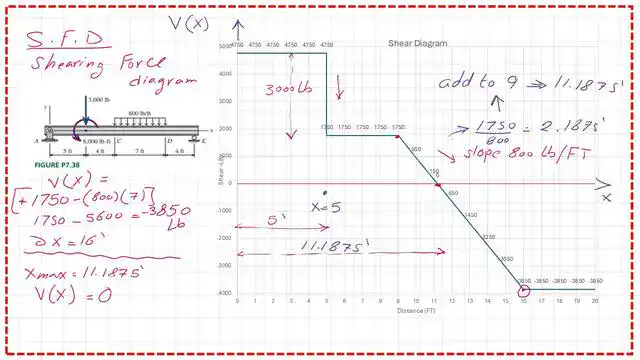 S.F.D
Shearing Force
diagram
3,000 lb
800 lb/ft
y
x
6,000 lb-ft
A
B
C
D
E
5 ft
4 ft
7 ft
4 ft
FIGURE P7.38
V(x) =
[+1750-(800)(7)]
1750 - 5600 = -3850
Lb
∂ x = 16'
Xmax = 11.1875'
V(x) = 0
V(x)
Shear Diagram
5000
4000
3000
2000
1000
0
-1000
-2000
-3000
-4000
Shear -LBs
4750 4750 4750 4750 4750 4750
3000 lb
1750 1750 1750 1750 1750
950
150
-650
-1450
-2250
-3050
-3850 -3850 -3850 -3850 -3850
x=5
5'
11.1875'
x
0 1 2 3 4 5 6 7 8 9 10 11 12 13 14 15 16 17 18 19 20
Distance (FT)
add to 9 ⇒ 11.1875'
→ 1750/800 = 2.1875'
slope 800 lb/FT